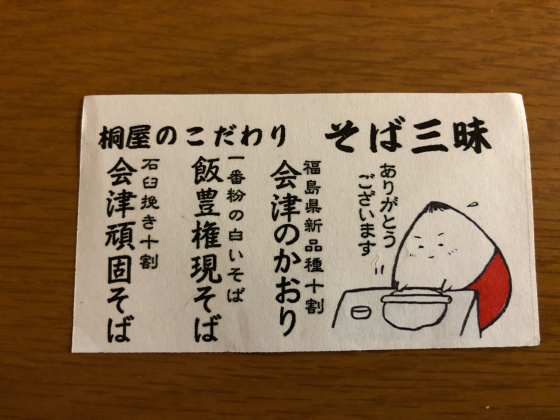 桐屋のこだわり
そば三昧
ありがとう
ございます
福島県新品種十割
会津のかおり
一番粉の白いそば
飯豊権現そば
石臼挽き十割
会津頑固そば